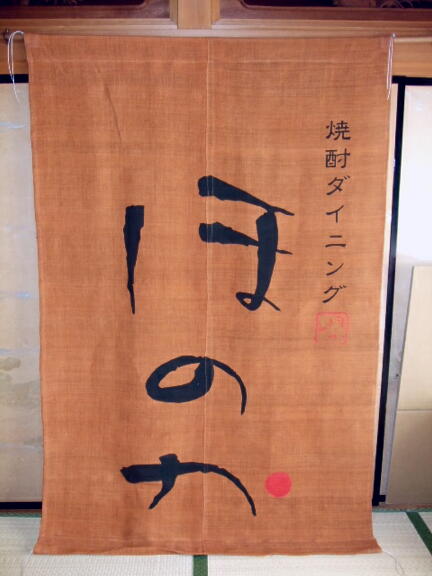 焼酎ダイニング
ほのか